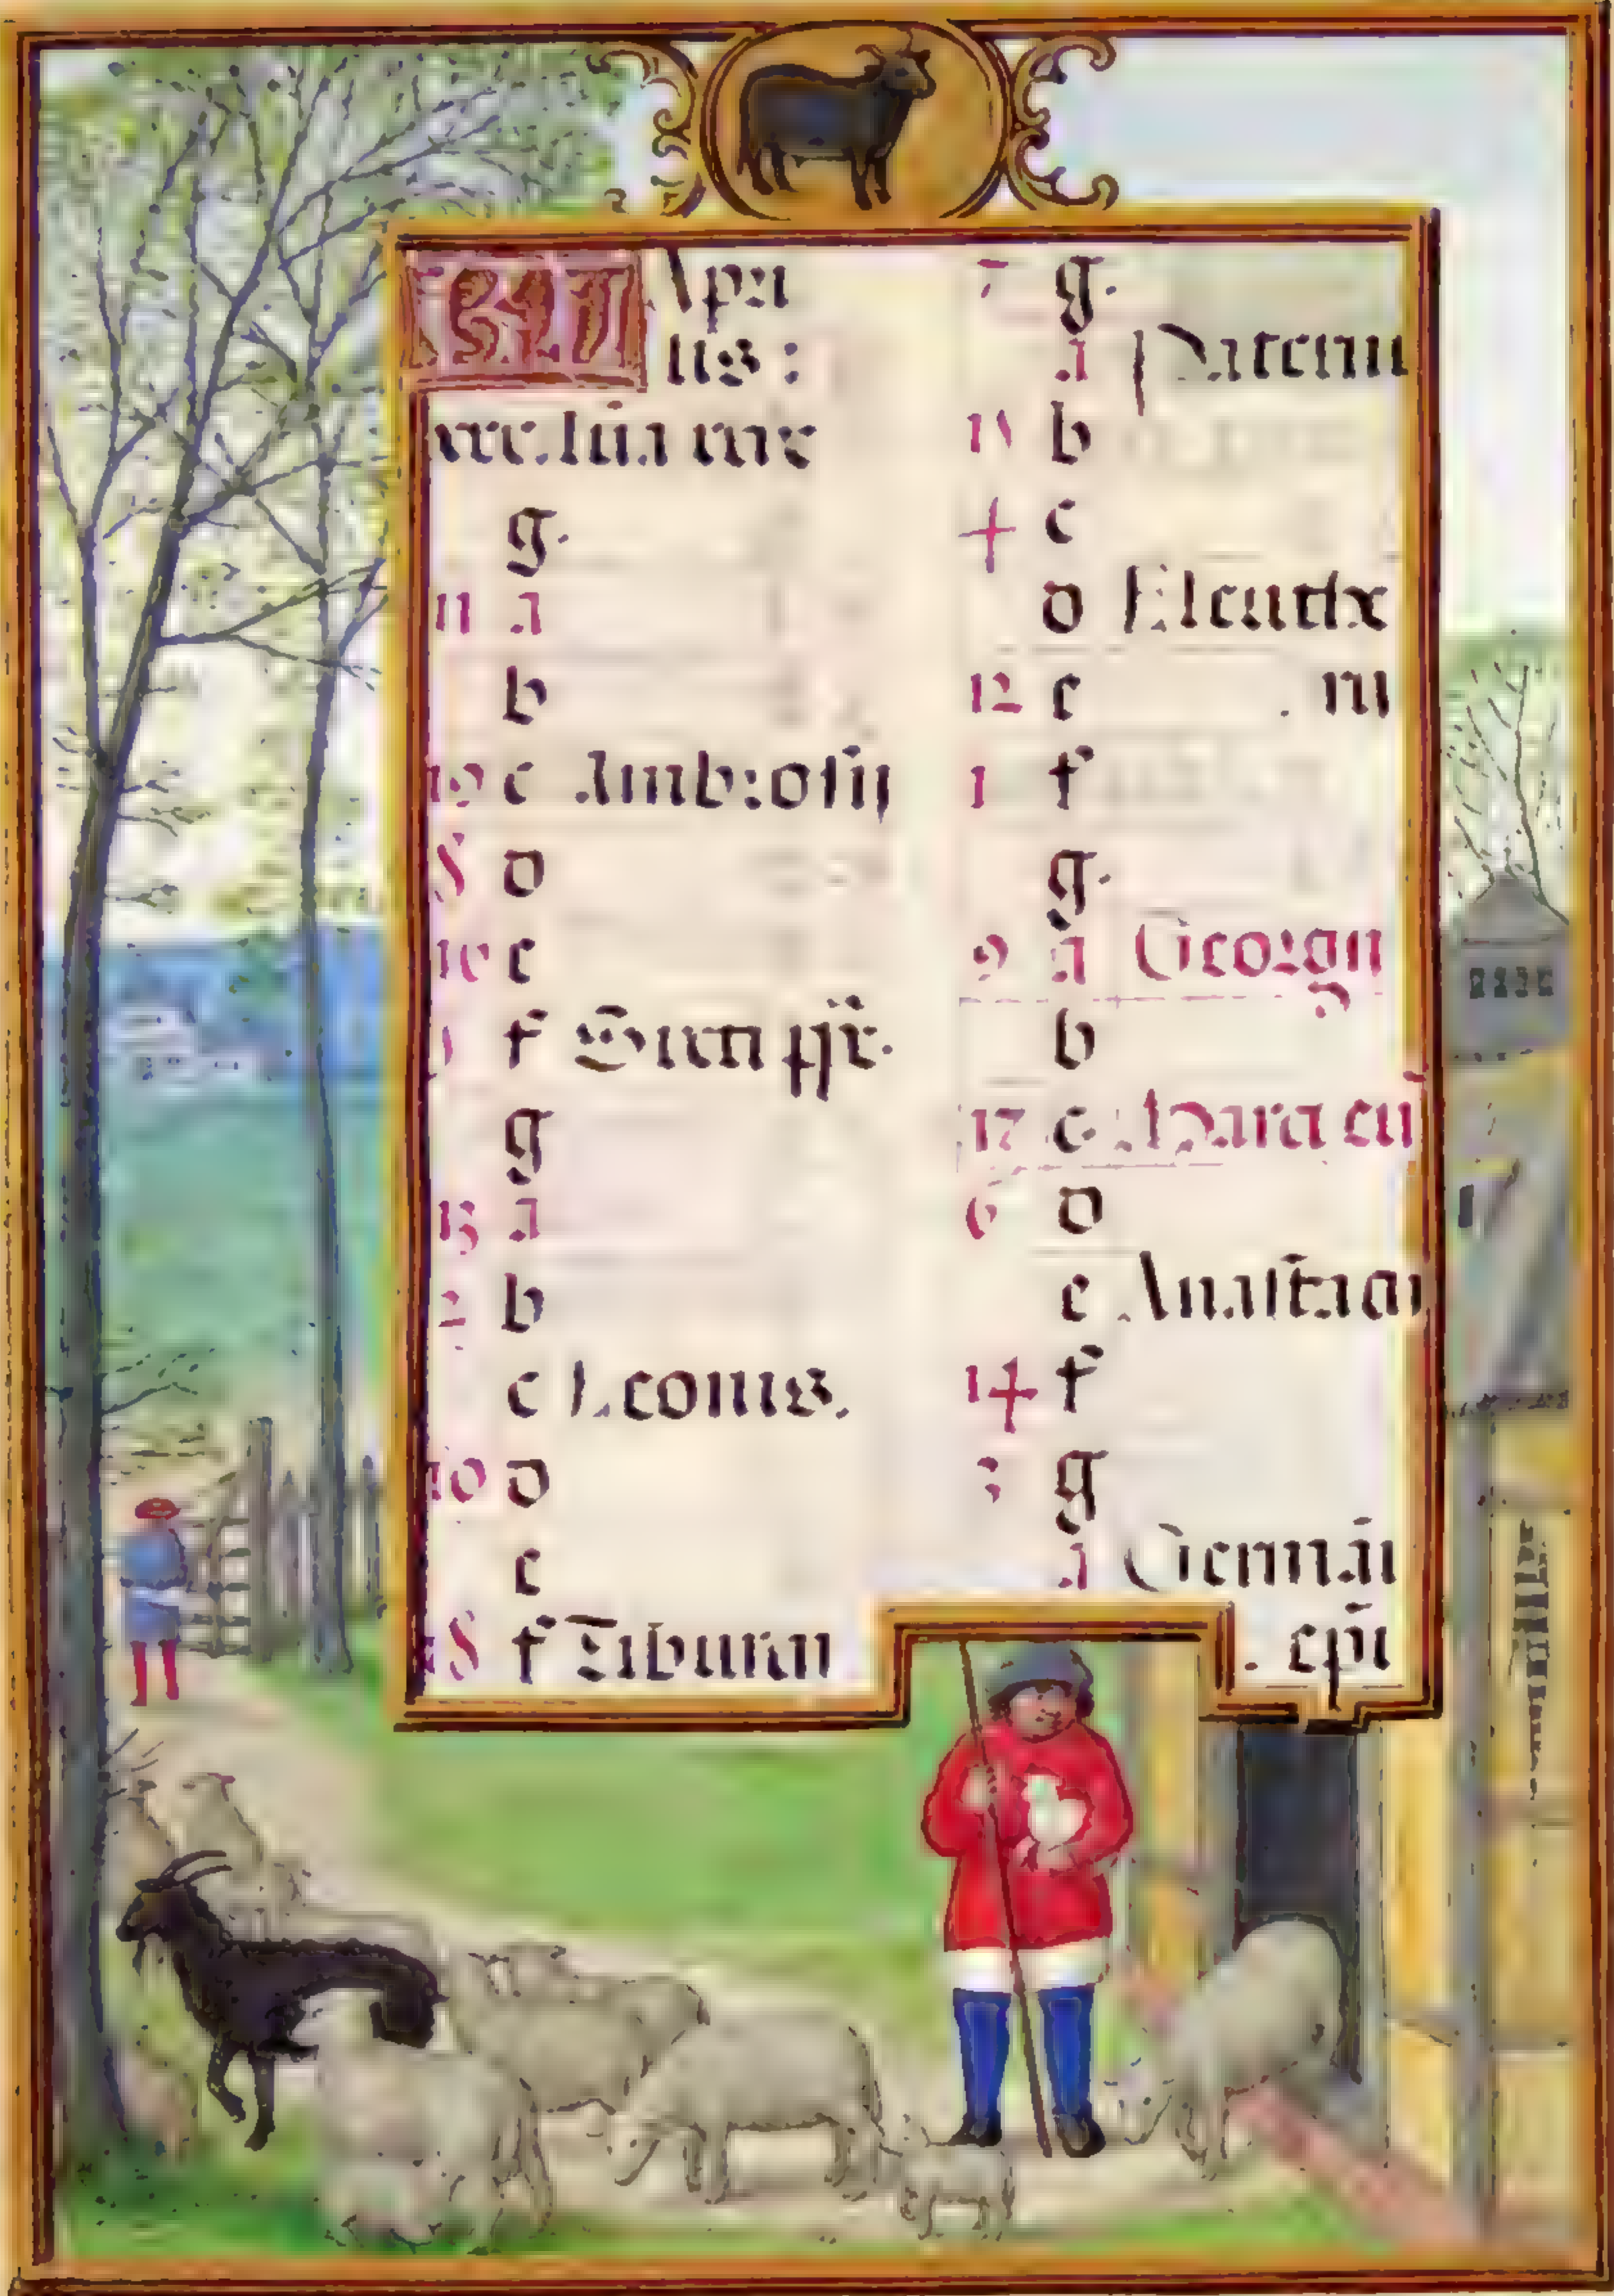 KL Apri
lis:
xxx. luna xxix
g.
11 a
b
19 c Ambrosij
8 d
16 e
5 f Sixti ppe.
g
13 a
2 b
c Leonis.
10 d
e
18 f Tiburtii
7 g.
a
15 b
4 c
d Eleuthe
12 e . rii
1 f
g.
9 a Georgii
b
17 c Marci eu
6 d
e Anastacii
14 f
3 g
a Germani
. epi